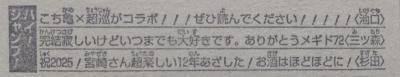 ハイジャンプ!
こち亀×超巡がコラボ!!!ぜひ読んでください!!!!!〈池口〉
完結寂しいけどいつまでも大好きです。ありがとうメギド72〈三ツ森〉
祝2025!宮崎さん超楽しい12年あざした!お酒はほどほどに!〈杉田〉